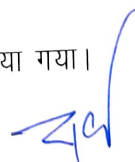 या गया।